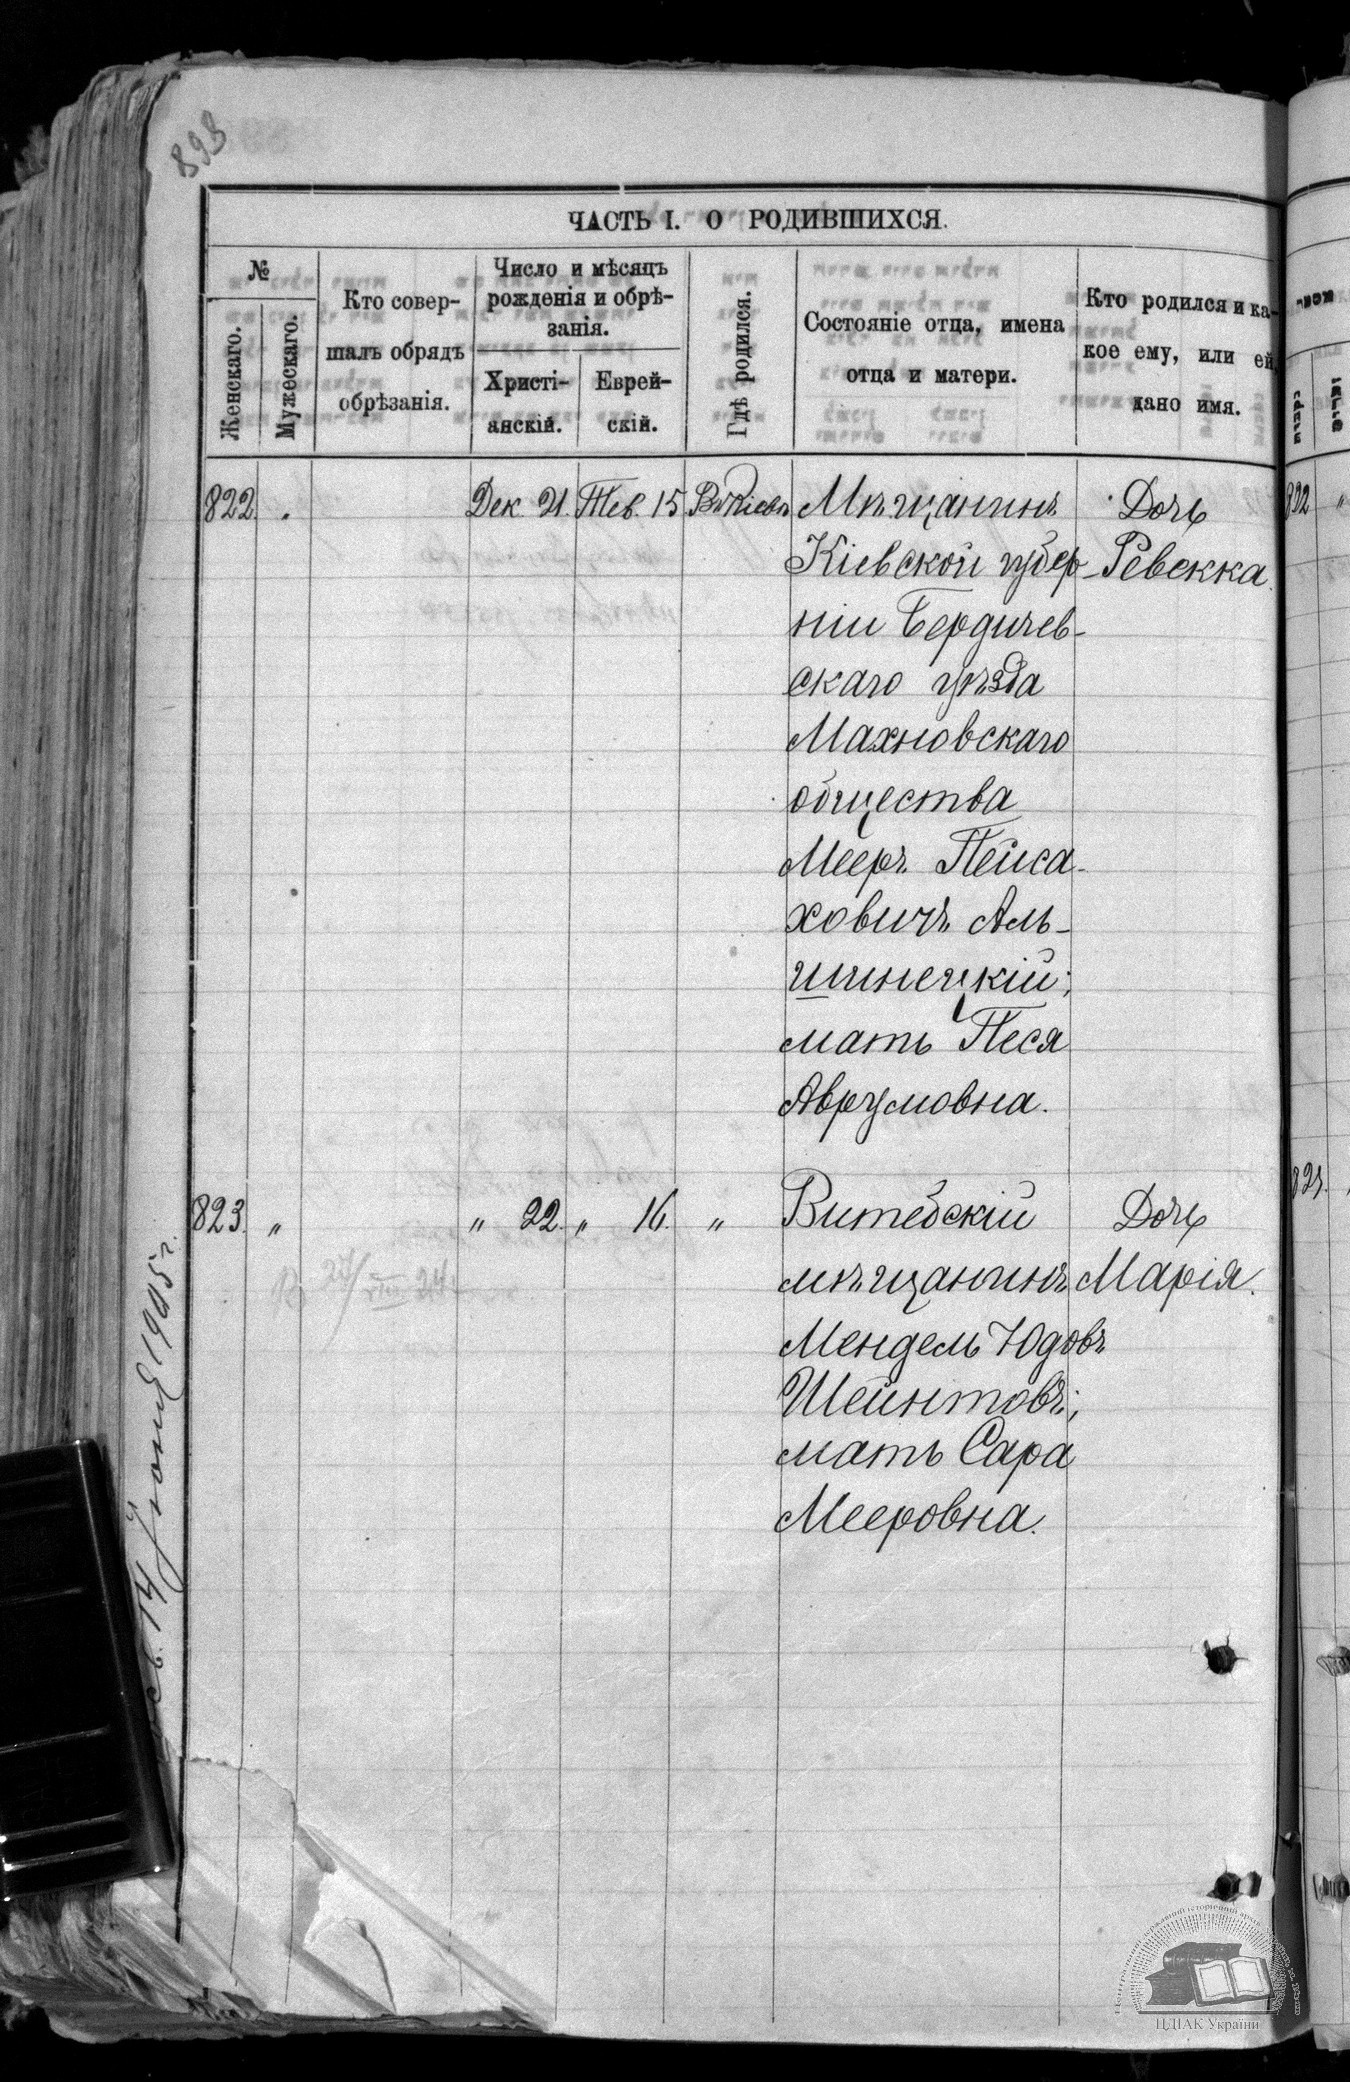 893
ЧАСТЬ I. О РОДИВШИХСЯ.
№
Женскаго.
Мужескаго.
Кто совер-
шалъ обрядъ
обрѣзанія.
Число и мѣсяцъ
рожденія и обрѣ-
занія.
Христі-
анскій.
Еврей-
скій.
Гдѣ родился.
Состояніе отца, имена
отца и матери.
Кто родился и ка-
кое ему, или ей,
дано имя.
822. Дек. 21. Тев. 15 Въ Кіевѣ Мѣщанинъ Дочь
Кіевской губер- Ревекка.
ніи Бердичев-
скаго уѣзда
Махновскаго
общества
Мееръ Пейса-
ховичъ Аль-
шинецкій;
мать Песя
Аврумовна.
823. „ „ 22. „ 16. „ Витебскій Дочь
мѣщанинъ Марія.
Мендель Юдовъ
Шейнтовъ;
мать Сара
Мееровна.
14 Іюня 1905 г.
נקבות
זכרים
822 „
ЦДІАК України